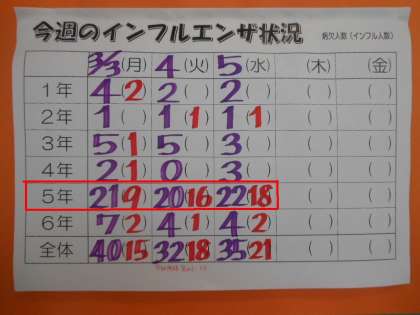 今週のインフルエンザ状況 病欠人数（インフル人数）
3/3(月) 4(火) 5(水) (木) (金)
1年 4(2) 2( ) 2( ) ( ) ( )
2年 1( ) 1(1) 1(1) ( ) ( )
3年 5(1) 5( ) 3( ) ( ) ( )
4年 2(1) 0( ) 3( ) ( ) ( )
5年 21(9) 20(16) 22(18) ( ) ( )
6年 7(2) 4(1) 4(2) ( ) ( )
全体 40(15) 32(18) 35(21) ( ) ( )